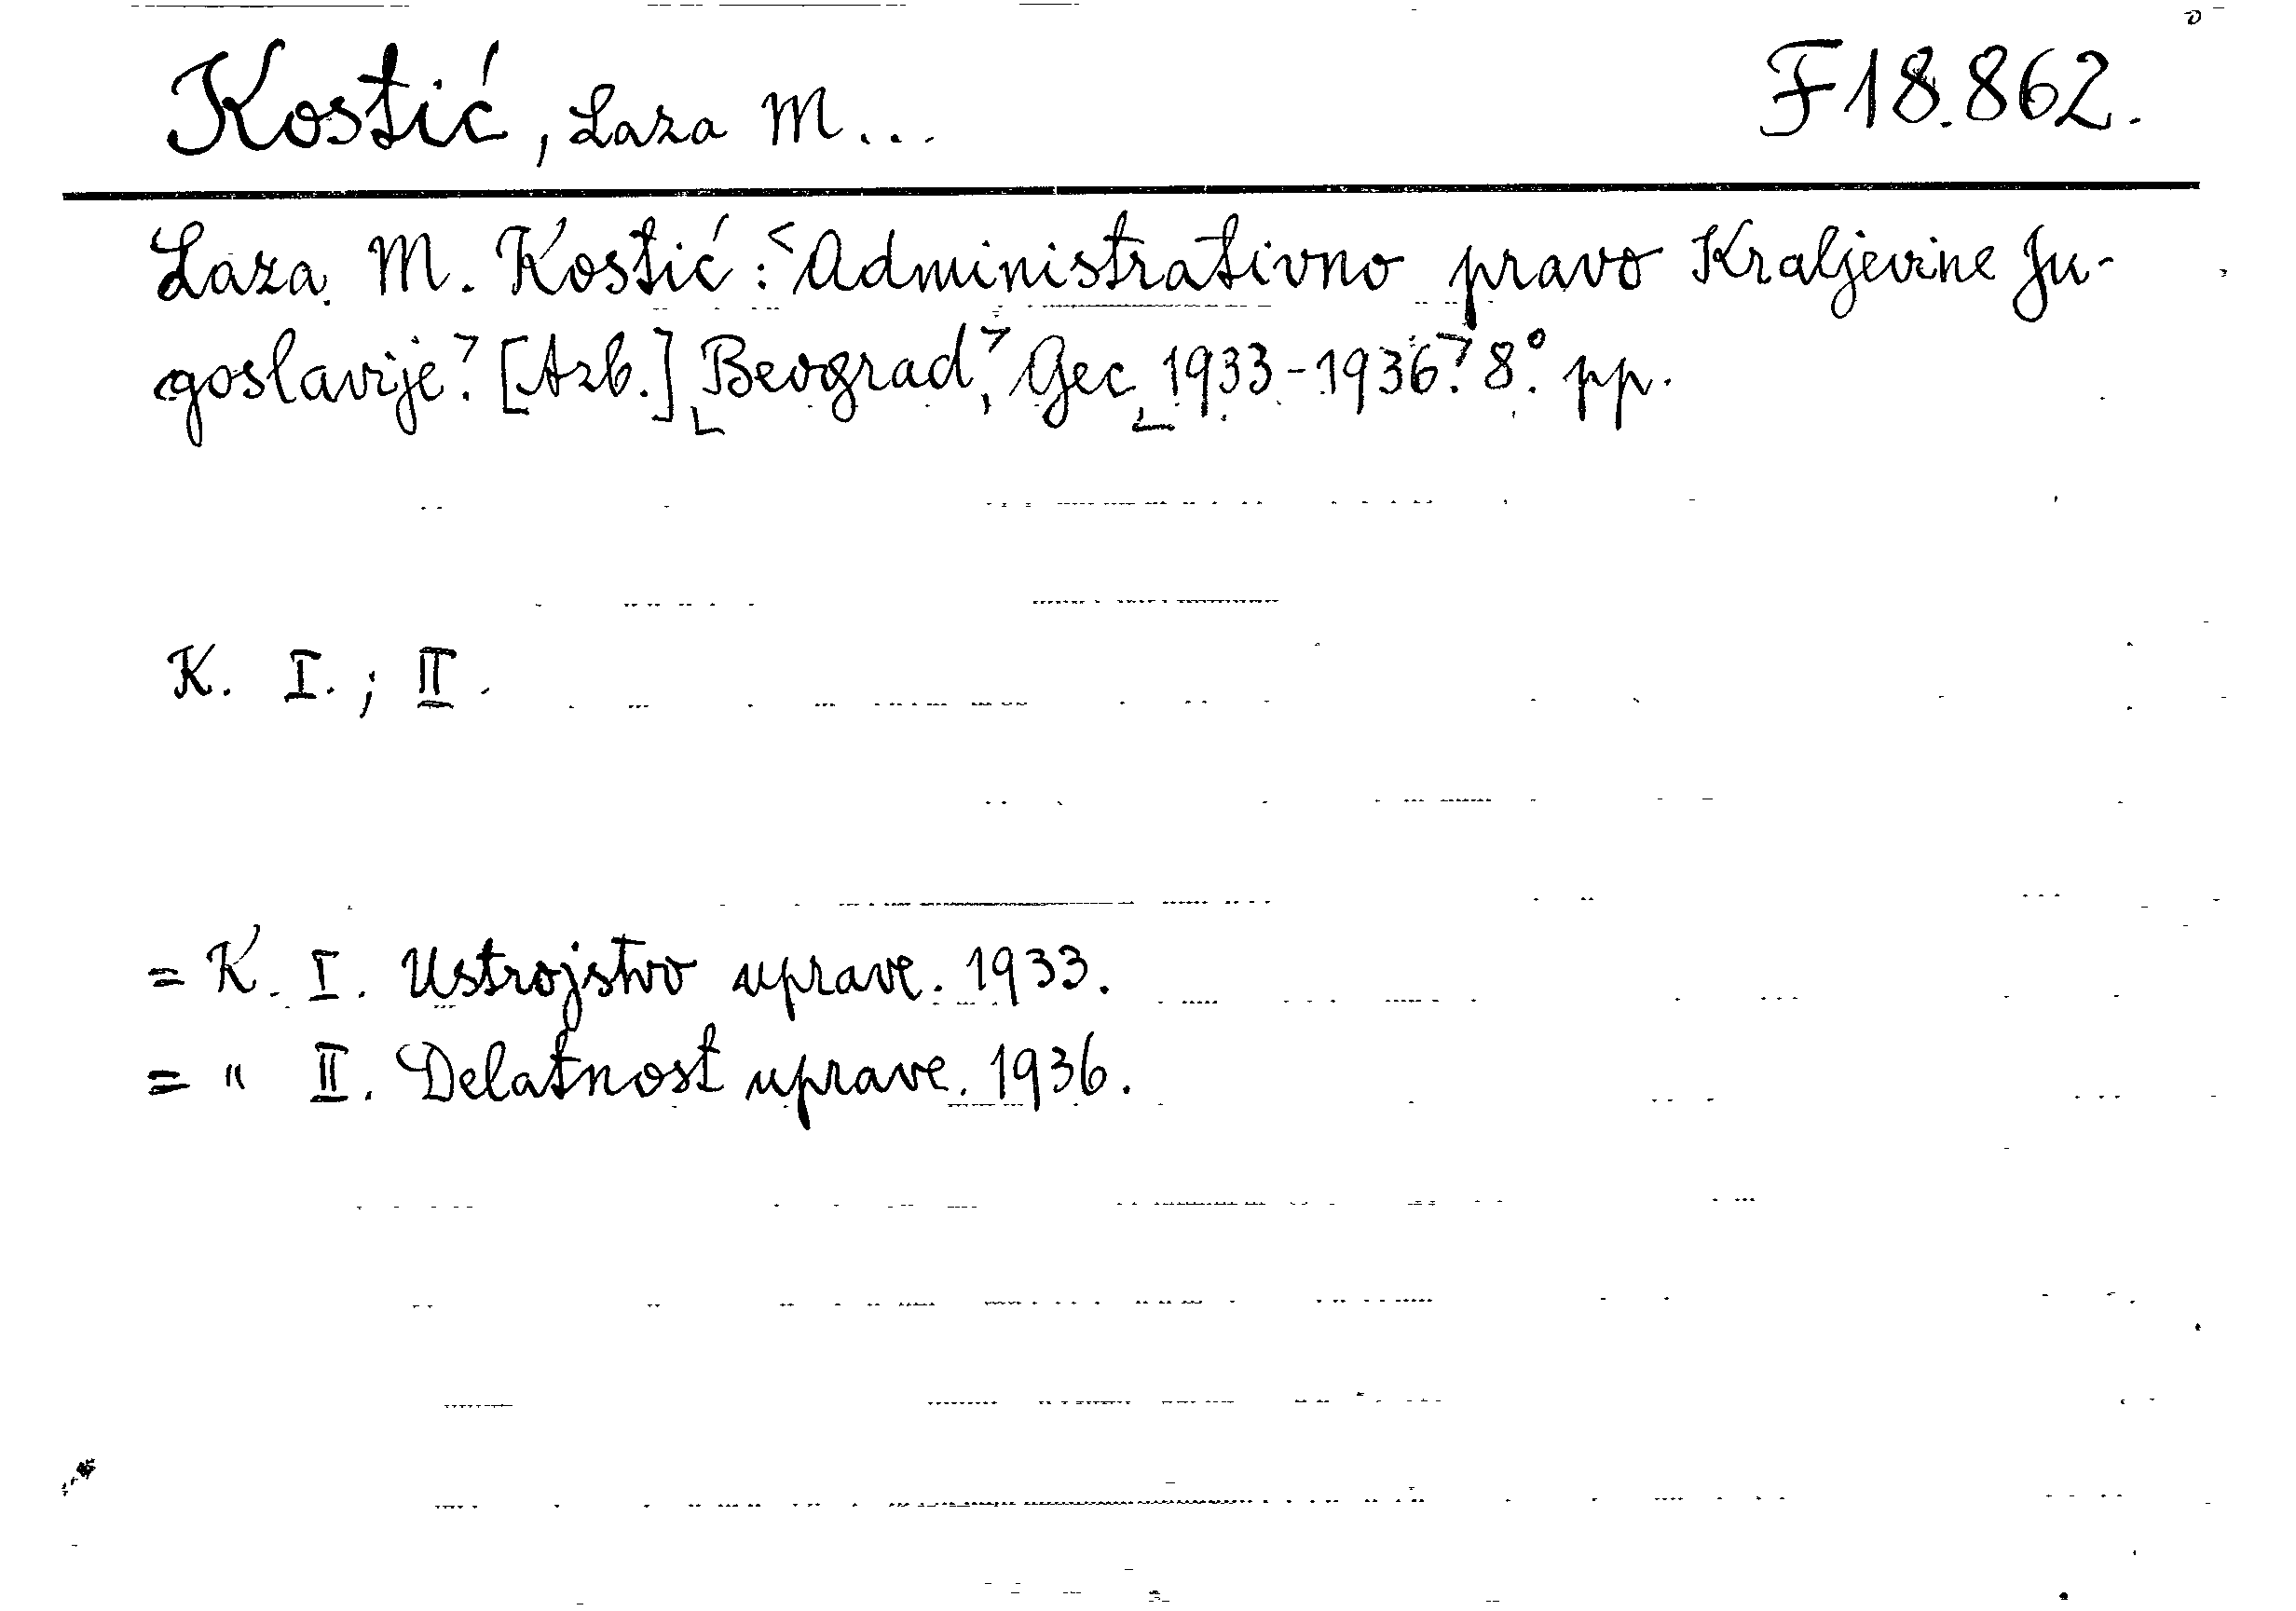 Kostić, Laza M... F 18.862.
Laza M. Kostić: <Administrativno pravo Kraljevine Ju-
goslavije>. [Azb.] ⌊Beograd⌉, Gec ⌊1933-1936⌉. 8°. pp.
K. I.; II.
= K. I. Ustrojstvo uprave. 1933.
= " II. Delatnost uprave. 1936.